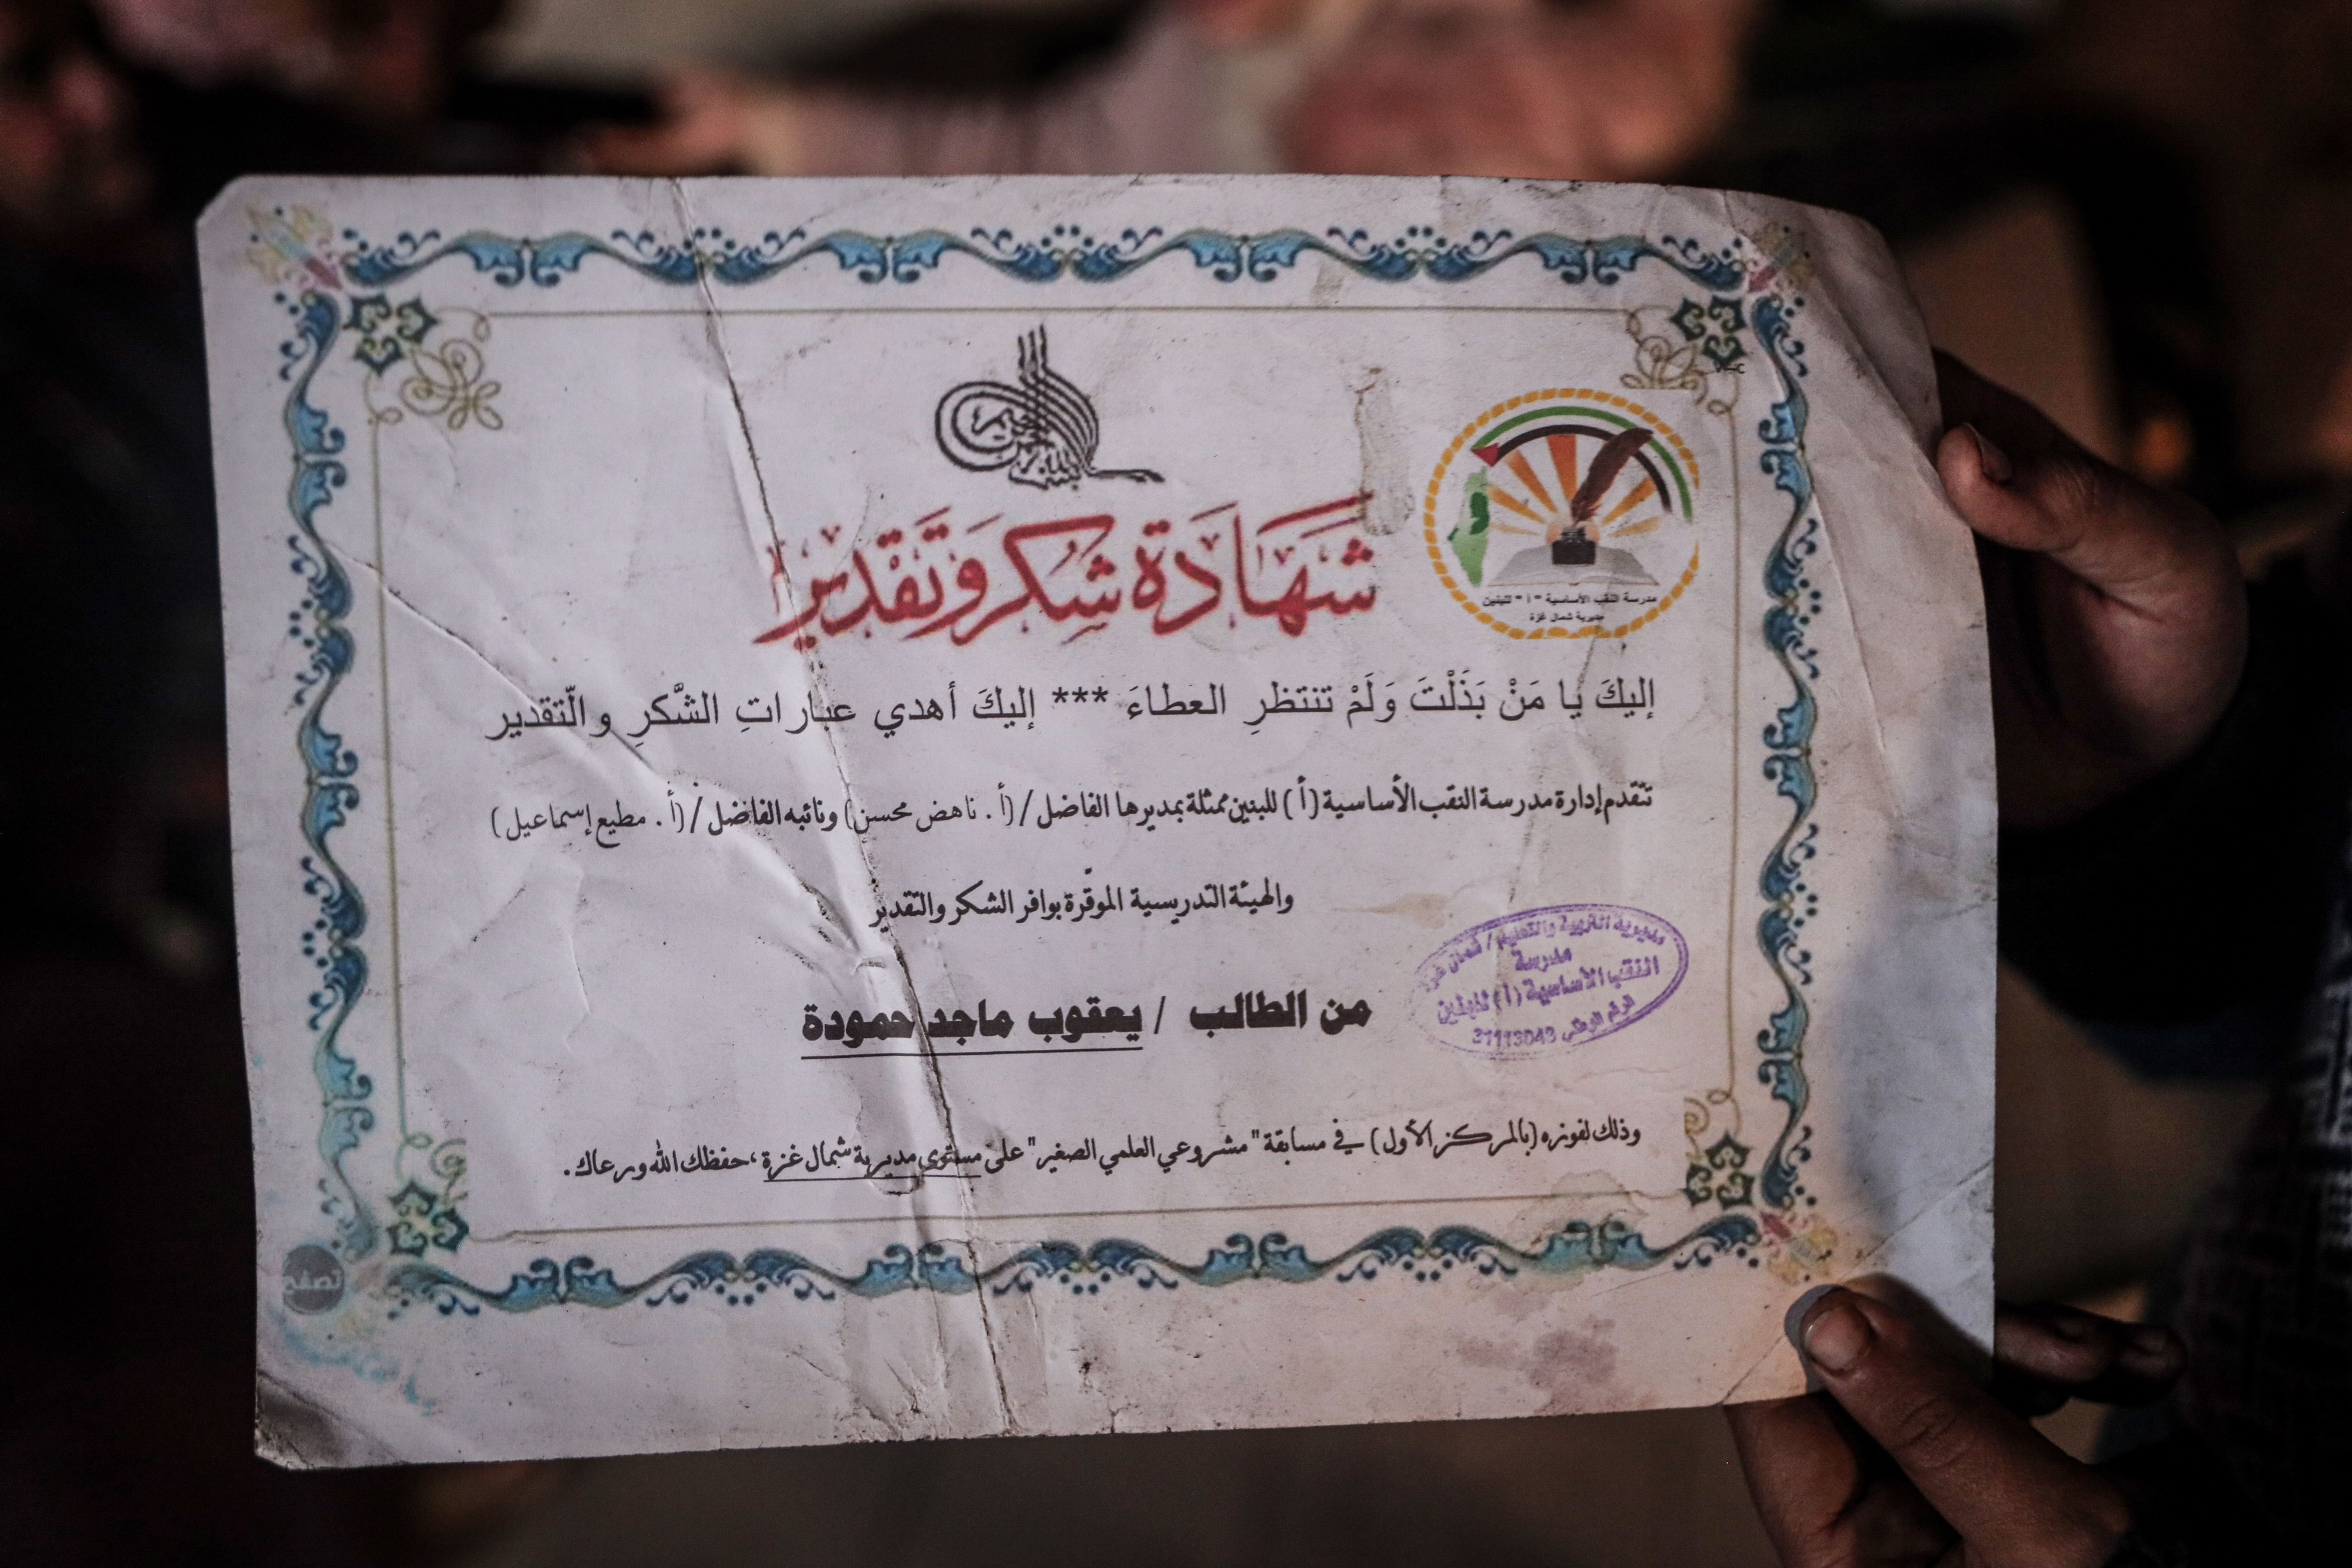 شَهَادَة شكر وَتَقدير
مدرسة النقب الأساسية "أ" للبنين
مديرية شمال غزة
إليكَ يا مَنْ بَذَلْتَ وَلَمْ تنتظرِ العطاءَ *** إليكَ أهدي عباراتِ الشَّكرِ والتّقدير
تتقدم إدارة مدرسة النقب الأساسية (أ) للبنين ممثلة بمديرها الفاضل/ (أ. ناهض محسن) ونائبه الفاضل/ (أ. مطيع إسماعيل)
والهيئة التدريسية الموقّرة بوافر الشكر والتقدير
من الطالب / يعقوب ماجد حمودة
مديرية التربية والتعليم / شمال غزة
مدرسة
النقب الأساسية (أ) للبنين
الرقم الوطني 31113043
وذلك لفوزه (بالمركز الأول) في مسابقة "مشروعي العلمي الصغير" على مستوى مديرية شمال غزة، حفظك الله ورعاك.
تصفح